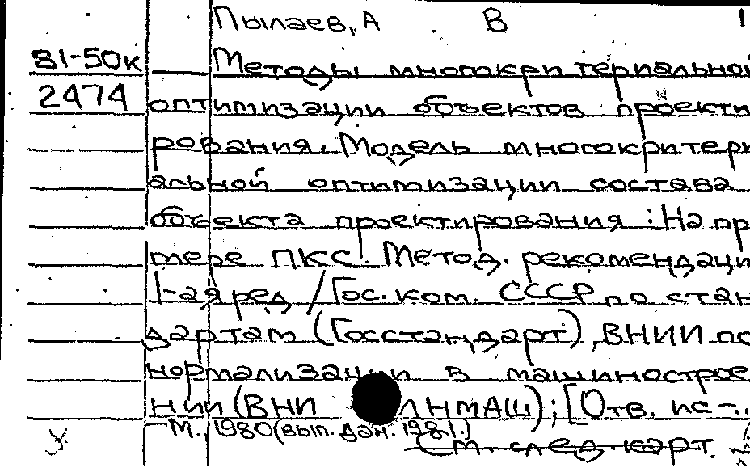 Пылаев, А В
81-50к Методы многокритериальной
2474 оптимизации объектов проекти
рования. Модель многокритери
альной оптимизации состава
объекта проектирования: На при
мере ПКС. Метод. рекомендаци
1-ая ред / Гос. ком. СССР по стан
дартам (Госстандарт), ВНИИ по
нормализации в машинострое
нии (ВНИ ЛНМАШ); [Отв. ис-
М., 1980 (вып. дан. 1981.)
См. след. карт.